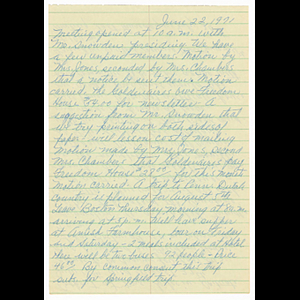 June 22, 1971
Meeting opened at 10 a.m. with
Mr. Snowden presiding. We have
a few unpaid members. Motion by
Mr. Jones, seconded by Mrs. Chambers
that a notice be sent them. Motion
carried. The Goldenaires owe Freedom
House $ for newsletters. A
suggestion from Mr. Snowden that
we try printing on both sides of
paper will lessen cost of mailing
Motion made by Mr. Jones, second
Mrs. Chambers that Goldenaires pay
Freedom House for this month
Motion carried. A trip to Penn. Dutch
Country is planned for August 5th
Leave Boston Thursday morning at 8 a.m.
arriving at 5 p.m. Will have supper
at Amish Farmhouse, tour on Friday
and Saturday - 2 meals included at Hotel
There will be two buses. 92 people - Price
By common consent this trip
subs. for Springfield trip.